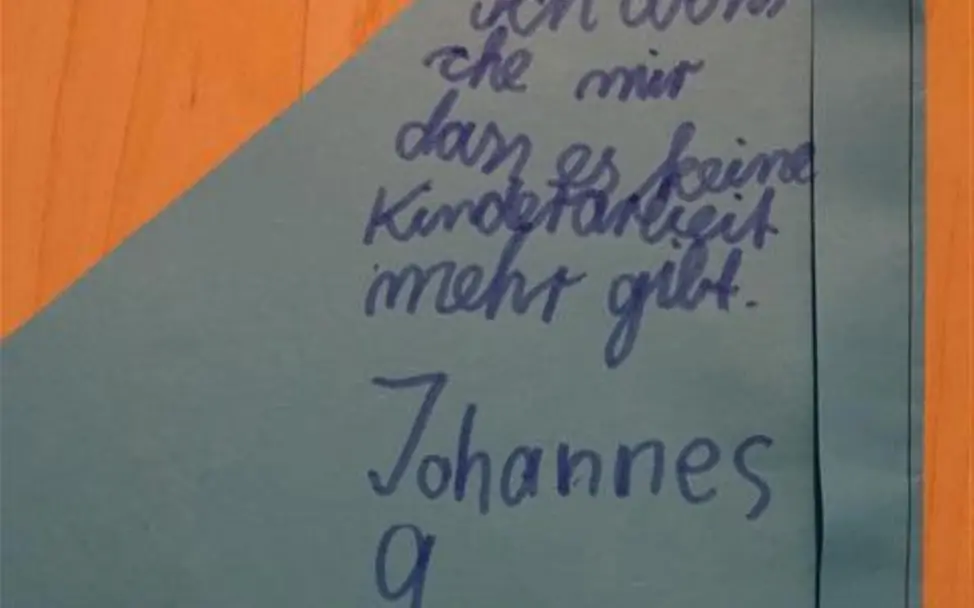 Ich wün
sche mir
dass es keine
Kinderarbeit
mehr gibt.
Johannes
9